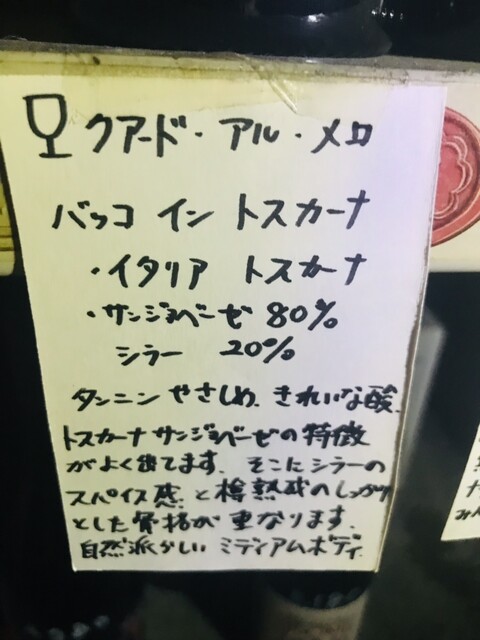 クアード・アル・メロ
バッコ イン トスカーナ
・イタリア トスカーナ
・サンジョベーゼ 80%
シラー 20%
タンニン やさしめ、きれいな酸、
トスカーナ サンジョベーゼの特徴
がよく出てます、そこにシラーの
スパイス感と樽熟成のしっかり
とした骨格が重なります、
自然派らしい ミディアムボディ